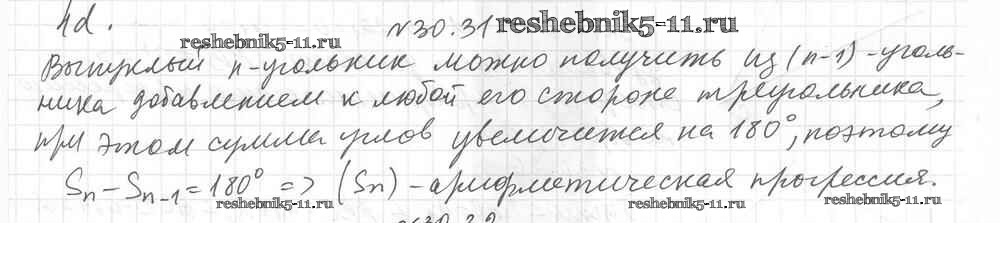 4d.
№30.31 reshebnik5-11.ru
reshebnik5-11.ru
Выпуклый n-угольник можно получить из (n-1)-уголь-
ника добавлением к любой его стороне треугольника,
при этом сумма углов увеличится на 180°, поэтому
Sn - Sn-1 = 180° => (Sn) - арифметическая прогрессия.
reshebnik5-11.ru reshebnik5-11.ru reshebnik5-11.ru